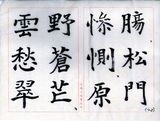 腸松門
慘惻原
野蒼芒
雲愁翠